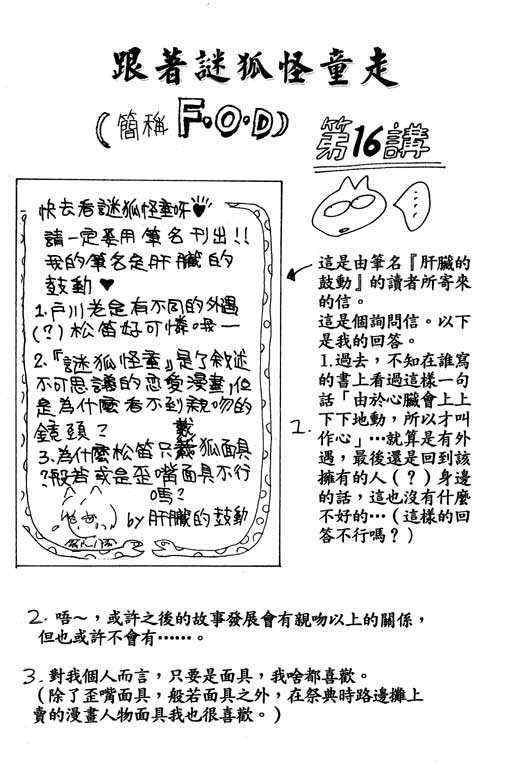 跟著謎狐怪童走
(簡稱F.O.D)
第16講
快去看謎狐怪童呀♥
請一定要用筆名刊出!!
我的筆名是肝臟的
鼓動♥
1.戶川老是有不同的外遇
(?)松笛好可憐哦—
2.『謎狐怪童』是了敘述
不可思議的戀愛漫畫,但
是為什麼看不到親吻的
鏡頭?
3.為什麼松笛只戴狐面具
?般若或是歪嘴面具不行
嗎?
by肝臟的鼓動
這是由筆名『肝臟的
鼓動』的讀者所寄來
的信。
這是個詢問信。以下
是我的回答。
1.過去,不知在誰寫
的書上看過這樣一句
話「由於心臟會上上
下下地動,所以才叫
作心」…就算是有外
遇,最後還是回到該
擁有的人(?)身邊
的話,這也沒有什麼
不好的…(這樣的回
答不行嗎?)
1.
2.唔~,或許之後的故事發展會有親吻以上的關係,
但也或許不會有……。
3.對我個人而言,只要是面具,我啥都喜歡。
(除了歪嘴面具,般若面具之外,在祭典時路邊攤上
賣的漫畫人物面具我也很喜歡。)